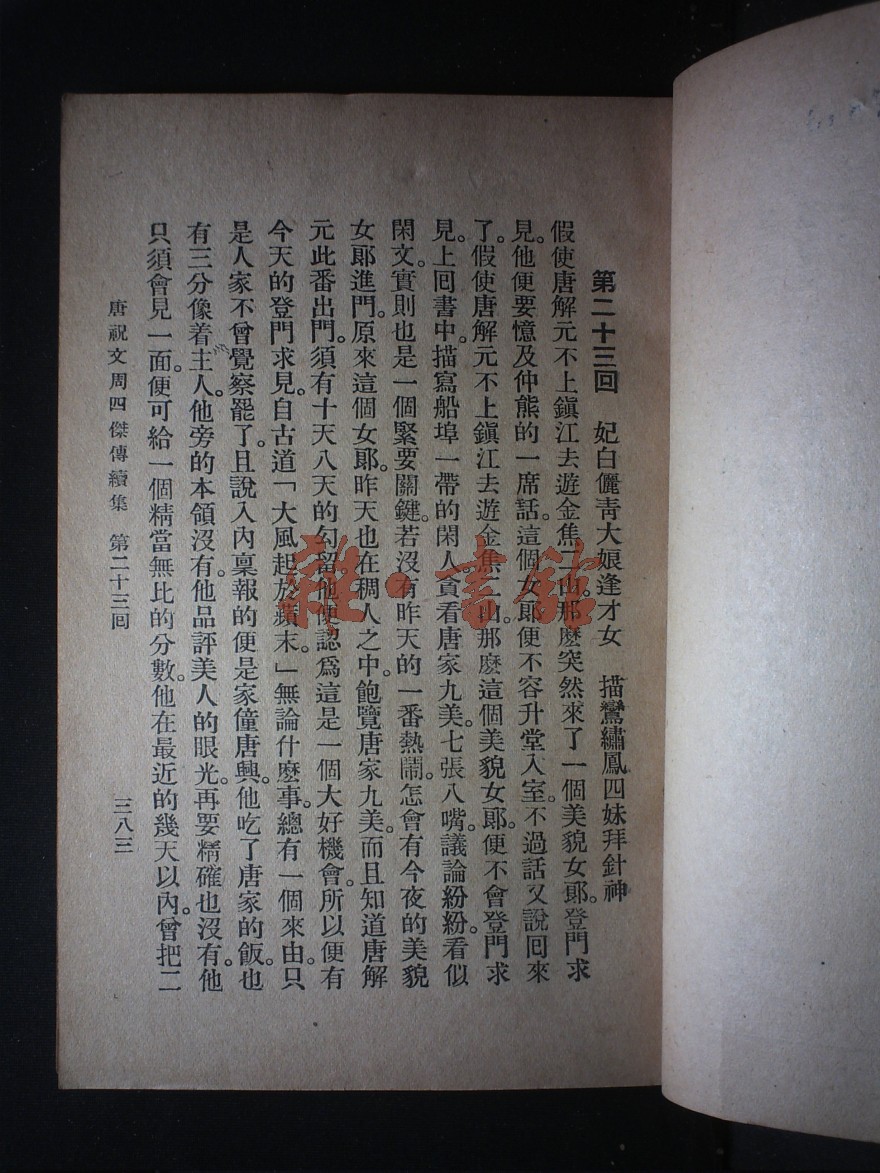 第二十三回　妃白儷青大娘逢才女　描鸞繡鳳四妹拜針神
假使唐解元不上鎭江去遊金焦二山。那麽突然來了一個美貌女郞。登門求
見。他便要憶及仲熊的一席話。這個女郞便不容升堂入室。不過話又說回來
了。假使唐解元不上鎭江去遊金焦二山。那麽這個美貌女郞。便不會登門求
見。上回書中。描寫船埠一帶的閑人。貪看唐家九美。七張八嘴。議論紛紛。看似
閑文。實則也是一個緊要關鍵。若沒有昨天的一番熱鬧。怎會有今夜的美貌
女郞進門。原來這個女郞。昨天也在稠人之中。飽覽唐家九美。而且知道唐解
元此番出門。須有十天八天的勾留。他便認爲這是一個大好機會。所以便有
今天的登門求見。自古道「大風起於蘋末。」無論什麽事。總有一個來由。只
是人家不曾覺察罷了。且說入內稟報的便是家僮唐興。他吃了唐家的飯。也
有三分像着主人。他旁的本領沒有。他品評美人的眼光。再要精確也沒有。他
只須會見一面。便可給一個精當無比的分數。他在最近的幾天以內。曾把二
唐祝文周四傑傳續集　第二十三回
三八三
雜·書館